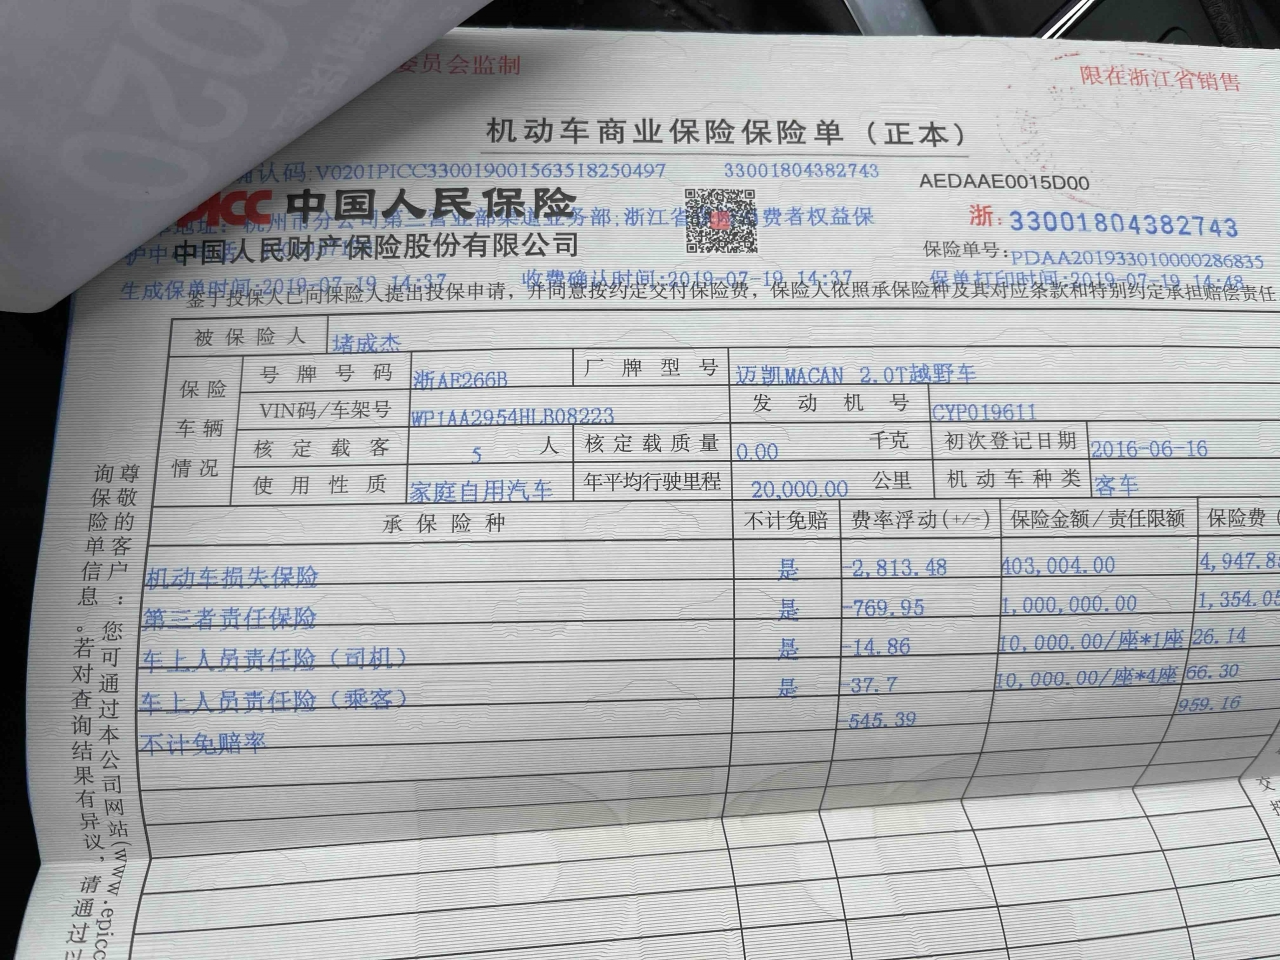 委员会监制
限在浙江省销售
机动车商业保险保险单（正本）
确认码:V0201PICC330019001563518250497 33001804382743
AEDAAE0015D00
PICC 中国人民保险
浙: 33001804382743
地址: 杭州市分公司第三营业部渠道业务部;浙江省 消费者权益保
护中
中国人民财产保险股份有限公司
保险单号: PDAA201933010000286835
生成保单时间:2019-07-19 14:37 收费确认时间:2019-07-19 14:37 保单打印时间:2019-07-19 14:48
鉴于投保人已向保险人提出投保申请，并同意按约定交付保险费，保险人依照承保险种及其对应条款和特别约定承担赔偿责任
被保险人 堵成杰
保险车辆情况
号牌号码 浙AE266B 厂牌型号 迈凯MACAN 2.0T越野车
VIN码/车架号 WP1AA2954HLB08223 发动机号 CYP019611
核定载客 5 人 核定载质量 0.00 千克 初次登记日期 2016-06-16
使用性质 家庭自用汽车 年平均行驶里程 20,000.00 公里 机动车种类 客车
承保险种 不计免赔 费率浮动(+/-) 保险金额/责任限额 保险费(
机动车损失保险 是 -2,813.48 403,004.00 4,947.8
第三者责任保险 是 -769.95 1,000,000.00 1,354.05
车上人员责任险（司机） 是 -14.86 10,000.00/座*1座 26.14
车上人员责任险（乘客） 是 -37.7 10,000.00/座*4座 66.30
不计免赔率 -545.39 959.16
尊敬的客户：您可通过本公司网站(www.epicc
询保险单信息。若对查询结果有异议，请通过以